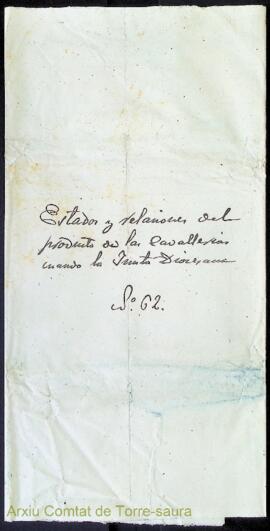 Estados y relaciones del
producto de las Cavallerias
cuando la Junta Diocesana
Nº. 62.
Arxiu Comtat de Torre-saura